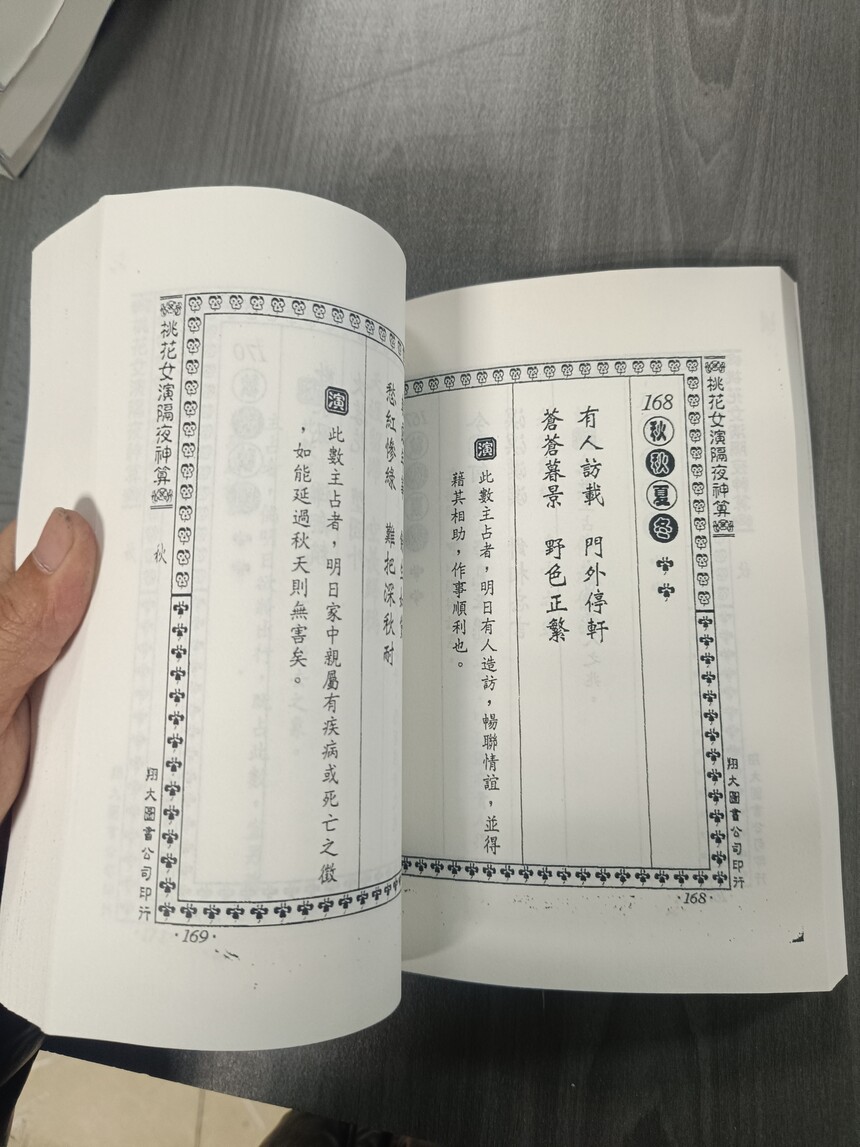 桃花女演隔夜神算
168 秋 秋 夏 冬
有人訪載 門外停軒
蒼蒼暮景 野色正繁
演 此數主占者，明日有人造訪，暢聯情誼，並得
藉其相助，作事順利也。
翔大圖書公司印行
·168·
愁紅慘綠 難把深秋耐
演 此數主占者，明日家中親屬有疾病或死亡之徵
，如能延過秋天則無害矣。
桃花女演隔夜神算 秋
翔大圖書公司印行
·169·